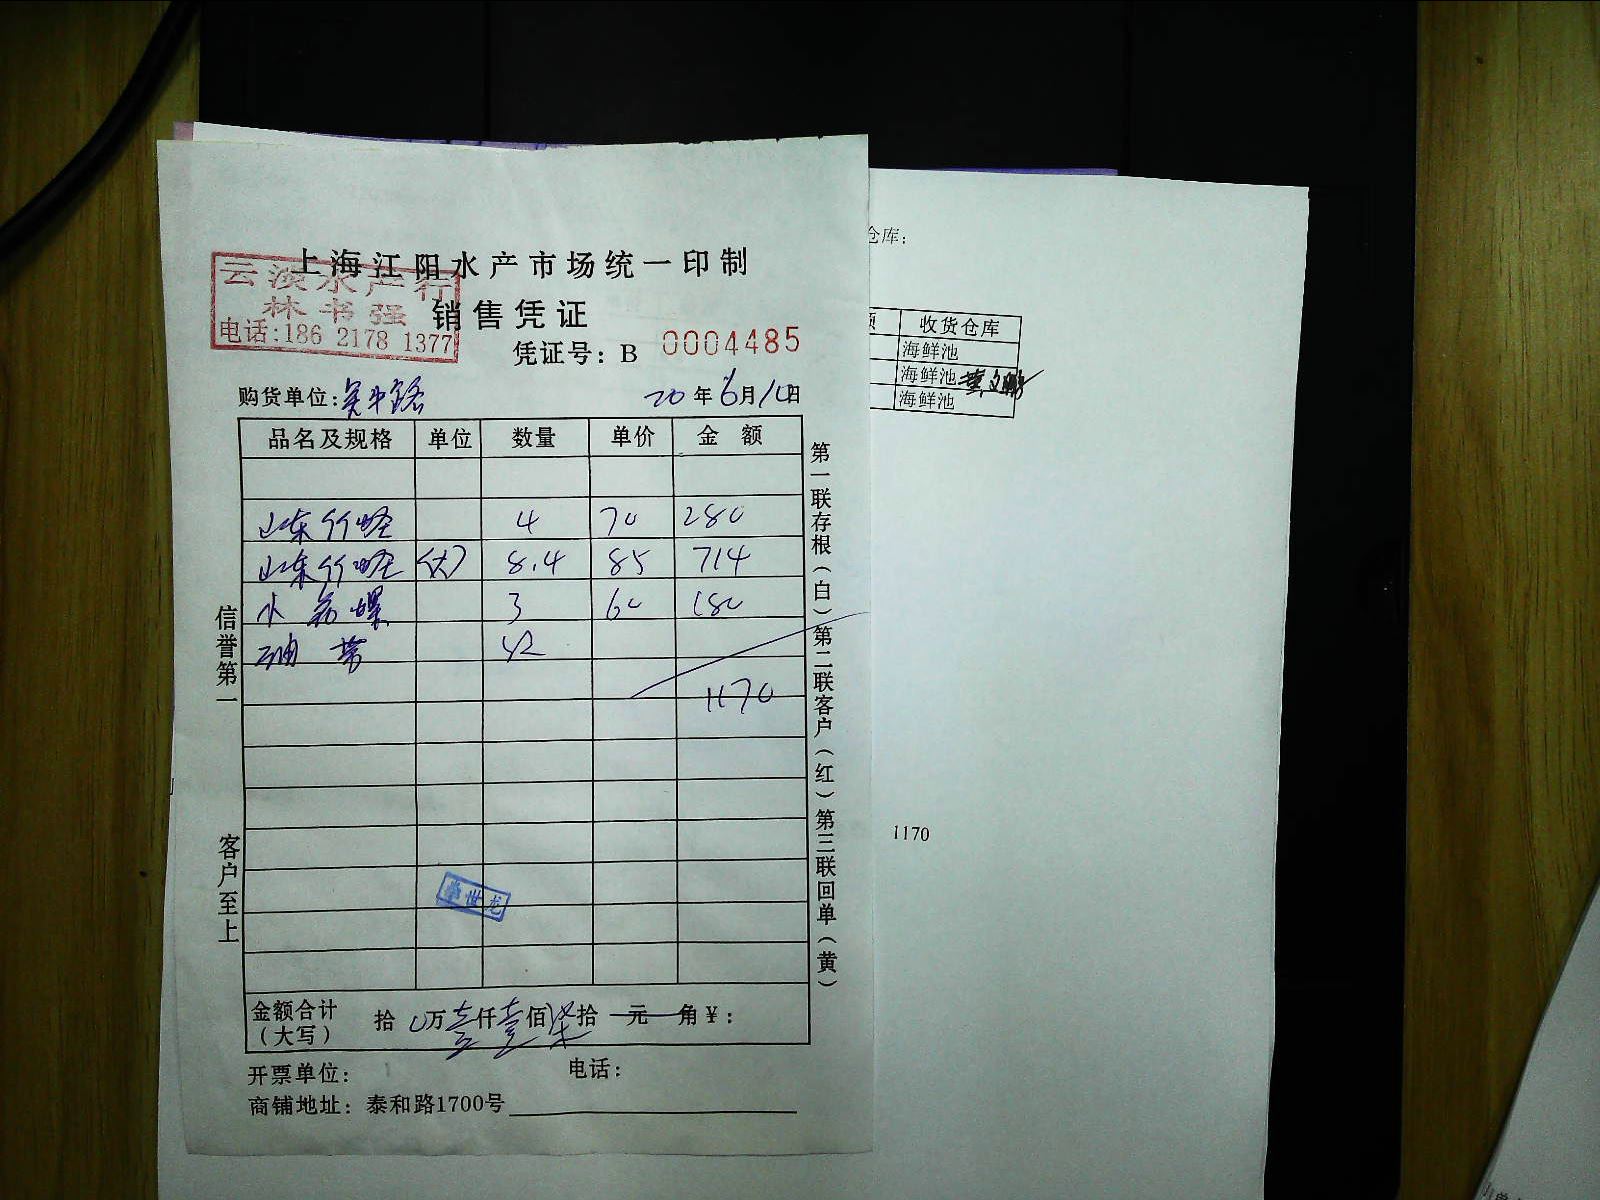 上海江阳水产市场统一印制
云溟水产行
林书强
电话:186 2178 1377
销售凭证
凭证号：B 0004485
购货单位:吴中路 20年6月12日
品名及规格 单位 数量 单价 金额
山东竹蛏 4 70 280
山东竹蛏 (大) 8.4 85 714
小花螺 3 60 180
42
1170
信誉第一
客户至上
世龙
第一联存根（白）第二联客户（红）第三联回单（黄）
金额合计（大写） 拾 0万壹仟壹佰柒拾元角¥：
开票单位： 电话：
商铺地址：泰和路1700号
仓库：
收货仓库
海鲜池
海鲜池
海鲜池
1170